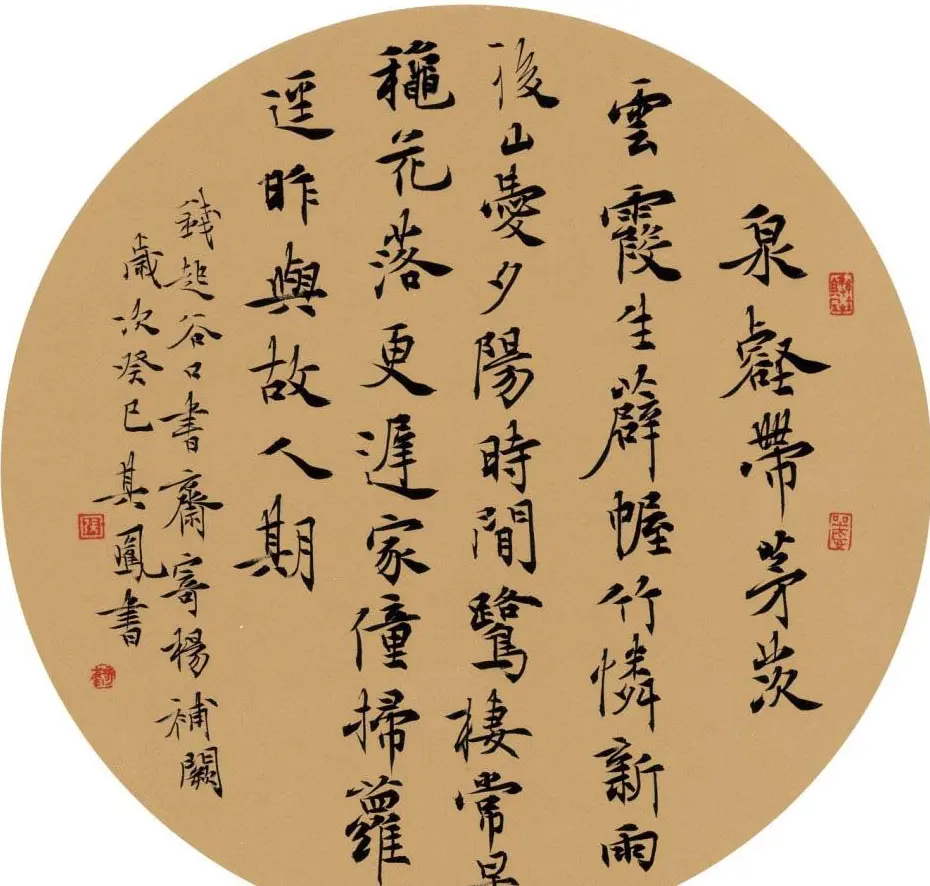 泉壑帶茅茨
雲霞生薜幄竹憐新雨
後山愛夕陽時閒鷺棲常早
穐花落更遲家僮掃蘿
逕昨與故人期
錢起谷口書齋寄楊補闕
歲次癸巳其鳳書